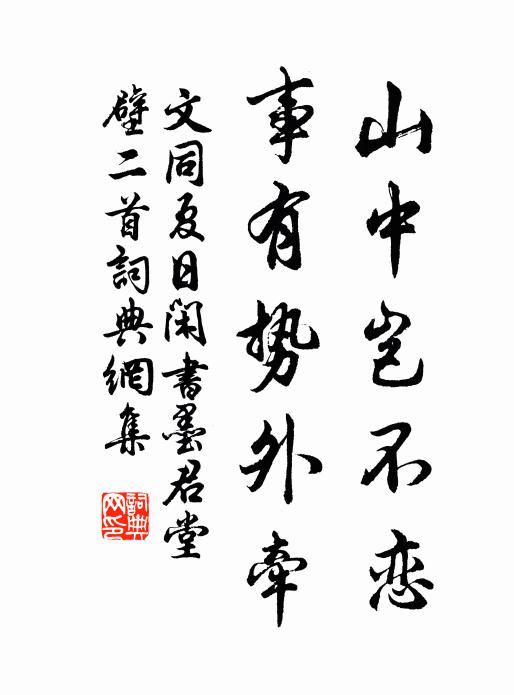 山中岂不恋
事有势外牵
文同夏日閑書墨君堂
壁二首詞典網集
詞典网印